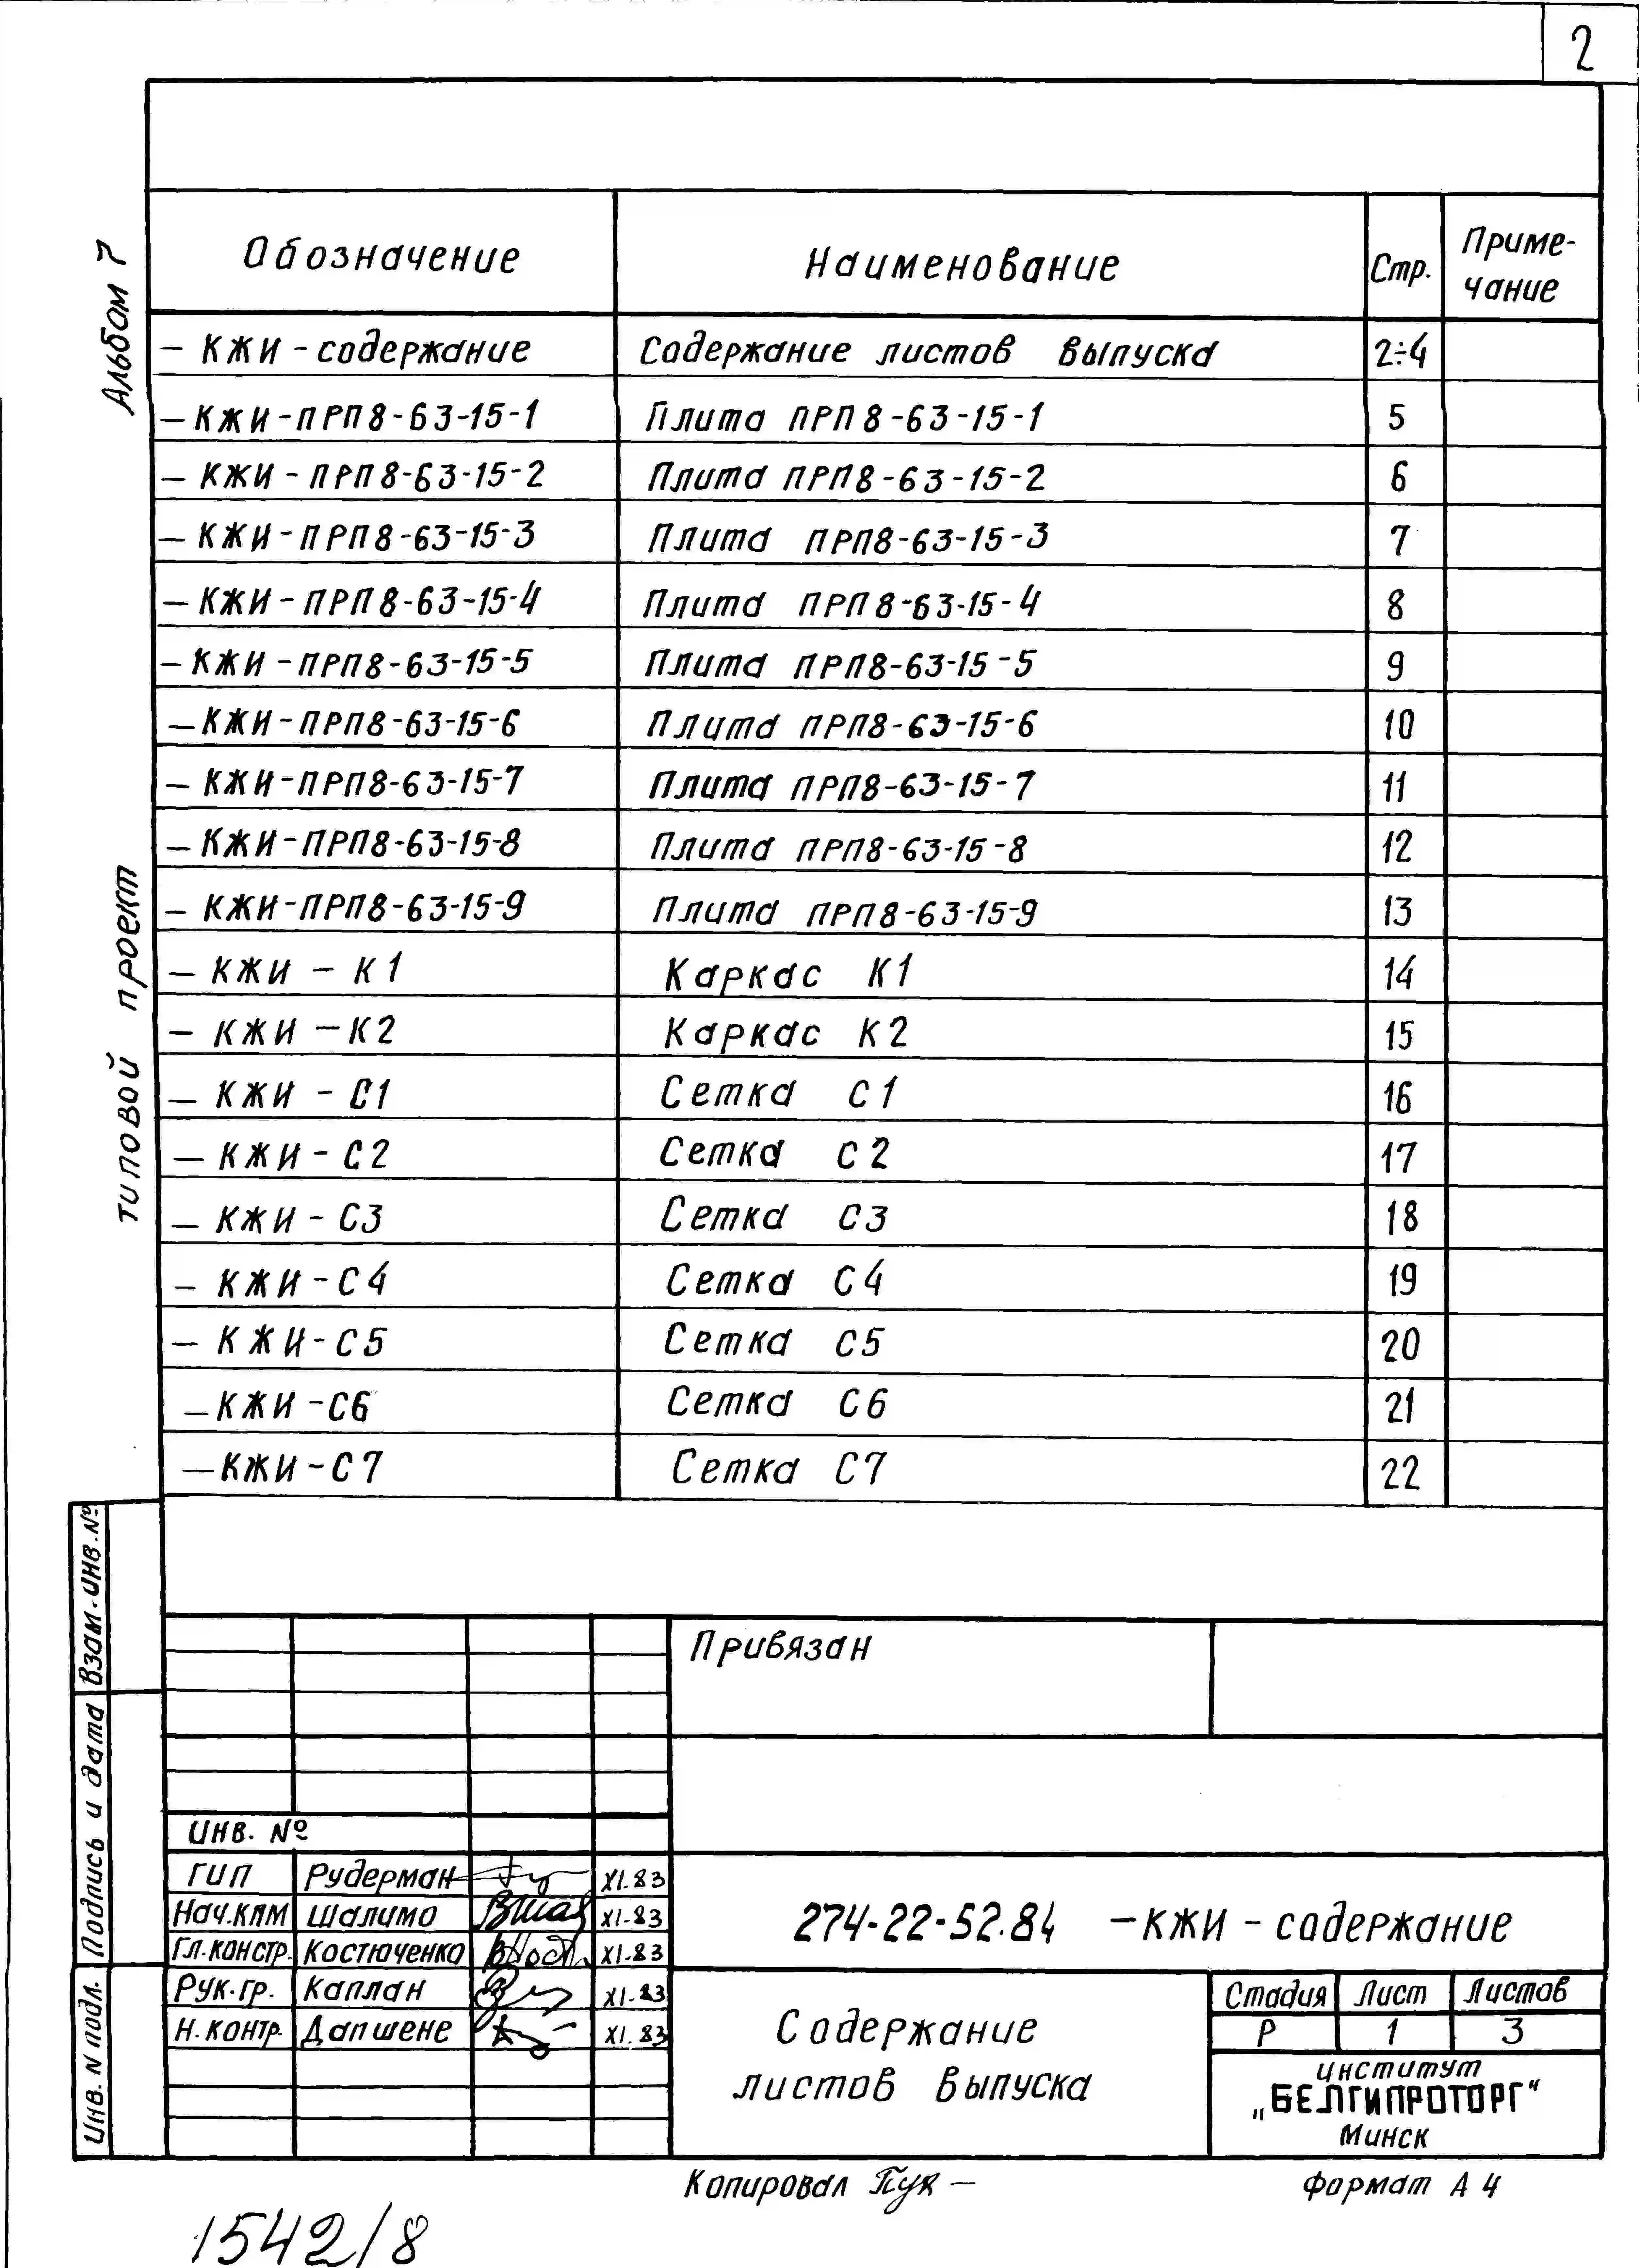 2
Альбом 7
типовой проект
Обозначение Наименование Стр. Приме-
чание
– КЖИ - содержание Содержание листов выпуска 2÷4
– КЖИ - ПРП8-63-15-1 Плита ПРП8-63-15-1 5
– КЖИ - ПРП8-63-15-2 Плита ПРП8-63-15-2 6
– КЖИ - ПРП8-63-15-3 Плита ПРП8-63-15-3 7
– КЖИ - ПРП8-63-15-4 Плита ПРП8-63-15-4 8
– КЖИ - ПРП8-63-15-5 Плита ПРП8-63-15-5 9
– КЖИ - ПРП8-63-15-6 Плита ПРП8-63-15-6 10
– КЖИ - ПРП8-63-15-7 Плита ПРП8-63-15-7 11
– КЖИ - ПРП8-63-15-8 Плита ПРП8-63-15-8 12
– КЖИ - ПРП8-63-15-9 Плита ПРП8-63-15-9 13
– КЖИ – К1 Каркас К1 14
– КЖИ – К2 Каркас К2 15
– КЖИ - С1 Сетка С1 16
– КЖИ - С2 Сетка С2 17
– КЖИ - С3 Сетка С3 18
– КЖИ - С4 Сетка С4 19
– КЖИ - С5 Сетка С5 20
– КЖИ - С6 Сетка С6 21
– КЖИ - С7 Сетка С7 22
Взам. инв. №
Подпись и дата
Инв. N подл.
Привязан
инв. №
ГИП Рудерман XI.83
Нач.КПМ Шалимо XI-83
Гл.констр. Костюченко XI.83
Рук.гр. Каплан XI.83
Н.контр. Дапшене XI.83
274-22-52.84 –КЖИ - содержание
Содержание
листов выпуска
Стадия Лист Листов
Р 1 3
институт
„БЕЛГИПРОТОРГ“
Минск
Копировал Формат А4
1542/8